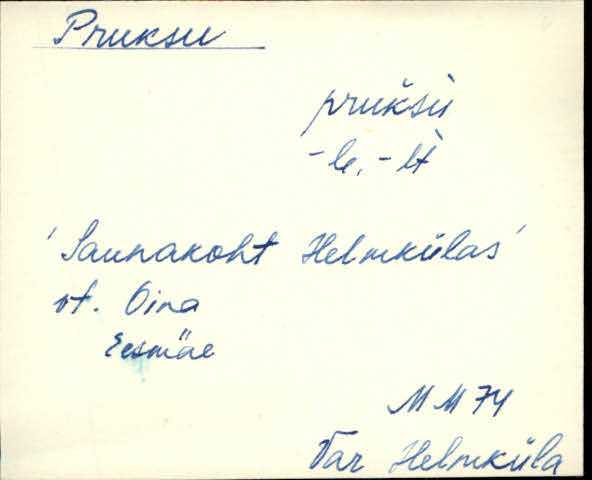 Pruksu
prukśù
-le, -lt
'Saunakoht Helmkülas'
vt. Oina
Eesmäe
MM 74
Var Helmküla